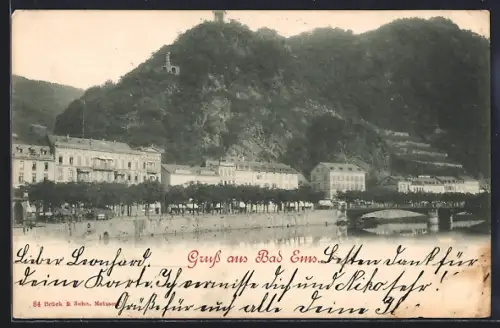 Gruß aus Bad Ems.
Lieber Leonhard, Besten Dank für
deine Karte. Ich vermisse dich und Niko sehr!
Grüße für euch alle Deine
84 Brück & Sohn, Meissen